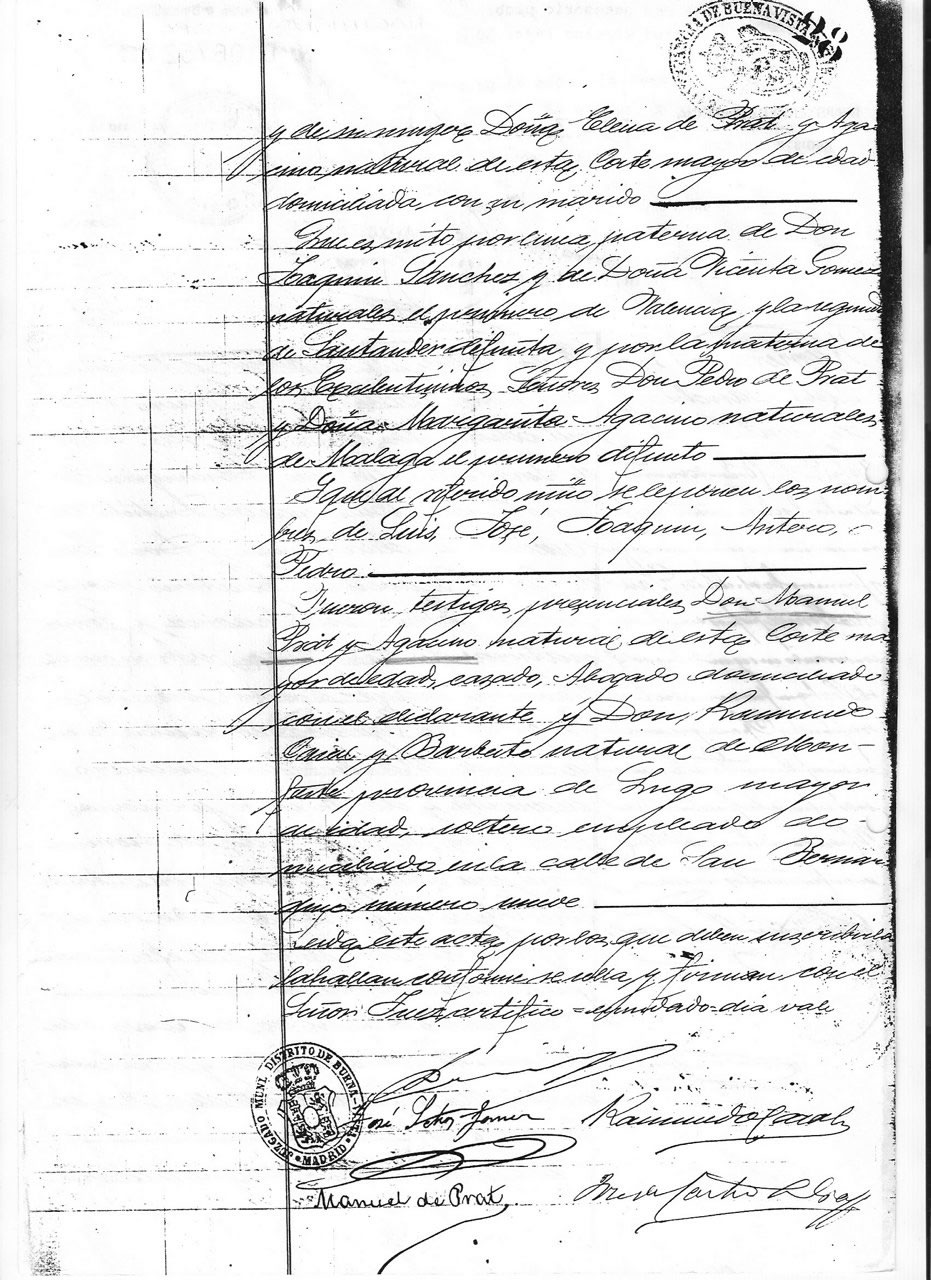 DE BUENAVISTA
28
y de su mujer Doña Elena de Prat y Aga-
cino natural de esta Corte mayor de edad
domiciliada con su marido
Que es nieto por línea paterna de Don
Joaquin Sanchez y de Doña Vicenta Gomez
naturales el primero de Valencia y la segunda
de Santander difunta y por la materna de
los Excelentísimos Señores Don Pedro de Prat
y Doña Margarita Agacino naturales
de Malaga el primero difunto
Y que al referido niño se le ponen los nom-
bres de Luis, José, Joaquin, Antero,
Pedro
Fueron testigos presenciales Don Manuel
Prat y Agacino natural de esta Corte ma
yor de edad, casado, Abogado domiciliado
con el declarante y Don Raimundo
y natural de Mon-
forte provincia de Lugo mayor
de edad, soltero empleado do-
miciliado en la calle de San Bernar
número nueve
Leida este acta por los que deben suscribirla
la hallan conforme se sella y firman con el
Señor Juez certifico = enmendado = dia vale
JUZGADO MUNL. DISTRITO DE BUENA-VISTA
MADRID
José
Raimundo
Manuel de Prat